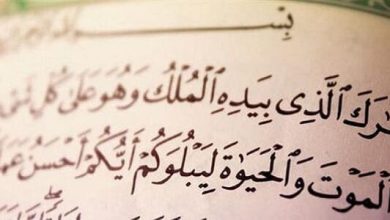 بِسْــــــمِ
ـٰرَكَ ٱلَّذِى بِيَدِهِ ٱلْمُلْكُ وَهُوَ عَلَىٰ كُلِّ شَىْ
ٱلْمَوْتَ وَٱلْحَيَوٰةَ لِيَبْلُوَكُمْ أَيُّكُمْ أَحْسَنُ عَمَلًا